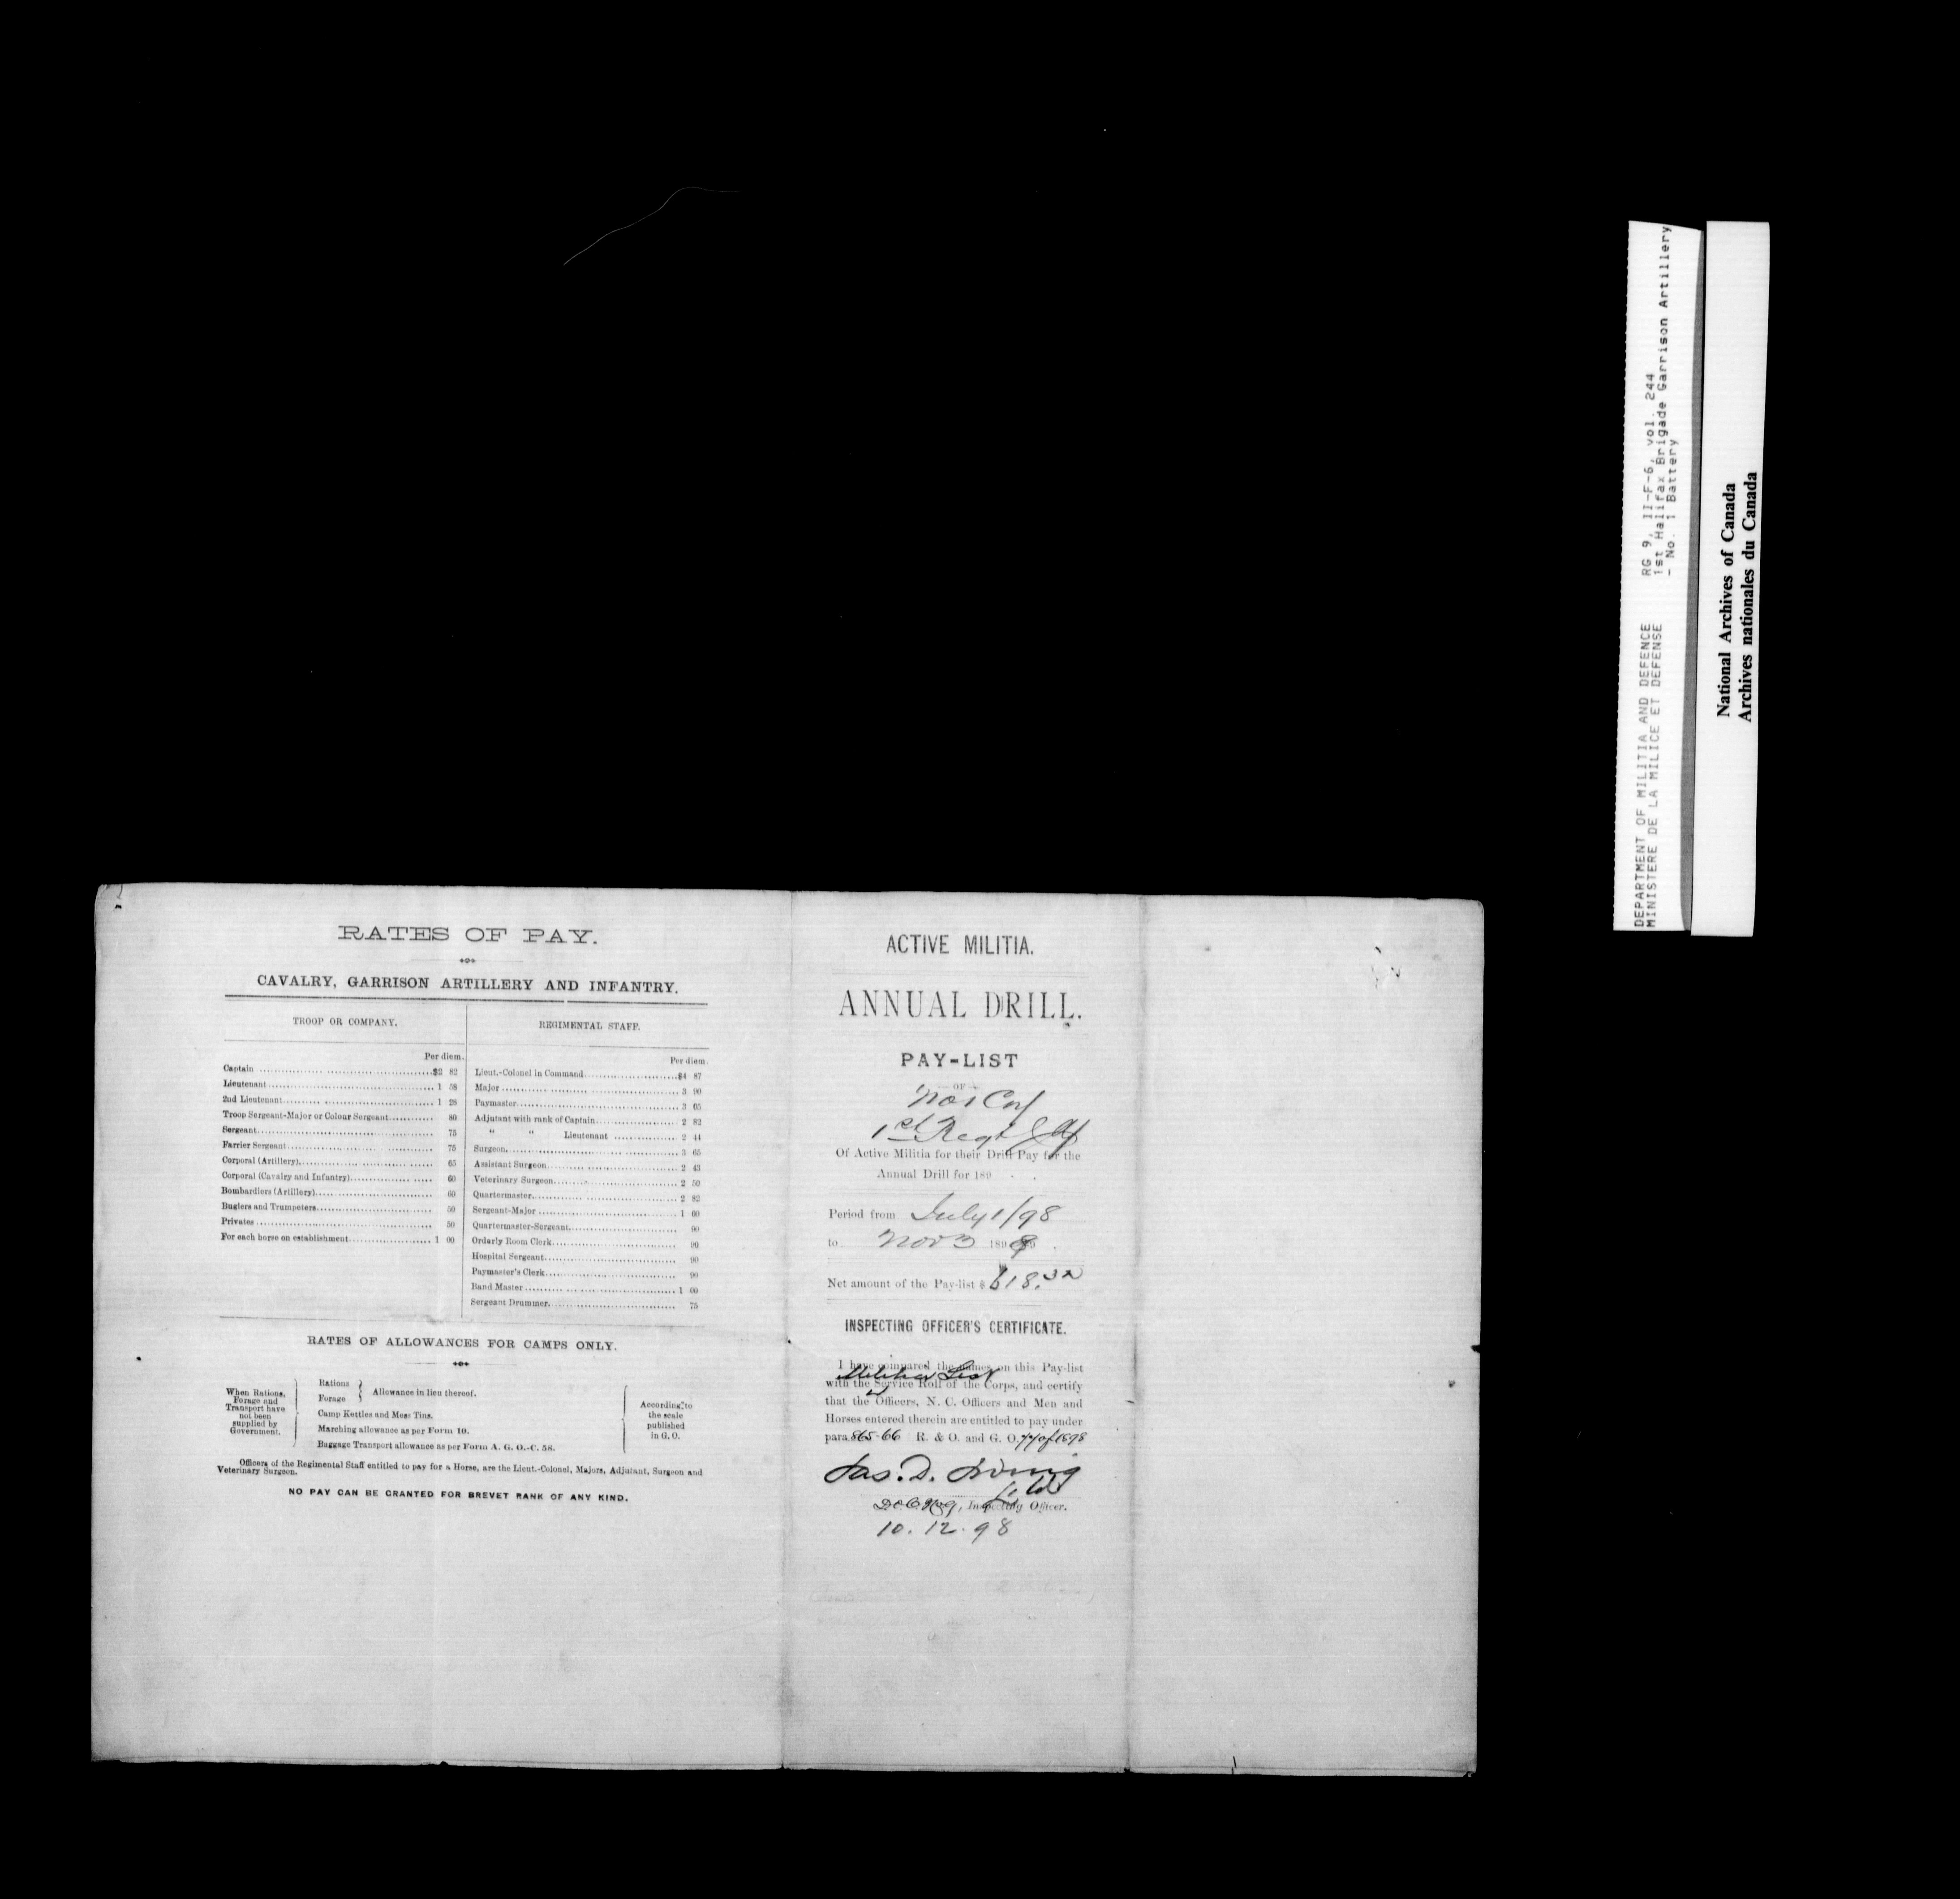 RATES OF PAY.
CAVALRY, GARRISON ARTILLERY AND INFANTRY.
TROOP OR COMPANY.
Per diem.
Captain $2 82
Lieutenant 1 58
2nd Lieutenant 1 28
Troop Sergeant-Major or Colour Sergeant 80
Sergeant 75
Farrier Sergeant 75
Corporal (Artillery) 65
Corporal (Cavalry and Infantry) 60
Bombardiers (Artillery) 60
Buglers and Trumpeters 50
Privates 50
For each horse on establishment 1 00
REGIMENTAL STAFF.
Per diem.
Lieut.-Colonel in Command $4 87
Major 3 90
Paymaster 3 05
Adjutant with rank of Captain 2 82
" " Lieutenant 2 44
Surgeon 3 65
Assistant Surgeon 2 43
Veterinary Surgeon 2 50
Quartermaster 2 82
Sergeant-Major 1 00
Quartermaster-Sergeant 90
Orderly Room Clerk 90
Hospital Sergeant 90
Paymaster's Clerk 90
Band Master 1 00
Sergeant Drummer 75
RATES OF ALLOWANCES FOR CAMPS ONLY.
When Rations,
Forage and
Transport have
not been
supplied by
Government.
Rations
Forage
Allowance in lieu thereof.
Camp Kettles and Mess Tins.
Marching allowance as per Form 10.
Baggage Transport allowance as per Form A. G. O.-C. 58.
According to
the scale
published
in G. O.
Officers of the Regimental Staff entitled to pay for a Horse, are the Lieut.-Colonel, Majors, Adjutant, Surgeon and
Veterinary Surgeon.
NO PAY CAN BE GRANTED FOR BREVET RANK OF ANY KIND.
ACTIVE MILITIA.
ANNUAL DRILL.
PAY-LIST
OF
No 1 Coy
1st Regt C A
Of Active Militia for their Drill Pay for the
Annual Drill for 189
Period from July 1/98
to Nov 3 1898
Net amount of the Pay-list $ 618.32
INSPECTING OFFICER'S CERTIFICATE.
I have compared the names on this Pay-list
Militia List
with the Service Roll of the Corps, and certify
that the Officers, N. C. Officers and Men and
Horses entered therein are entitled to pay under
para. 865-66 R. & O. and G. O. 77 of 1898
Jas. D. Irving
Inspecting Officer.
10.12.98
DEPARTMENT OF MILITIA AND DEFENCE
MINISTERE DE LA MILICE ET DEFENSE
RG 9, II-F-6, vol. 244
1st Halifax Brigade Garrison Artillery
- No. 1 Battery
National Archives of Canada
Archives nationales du Canada